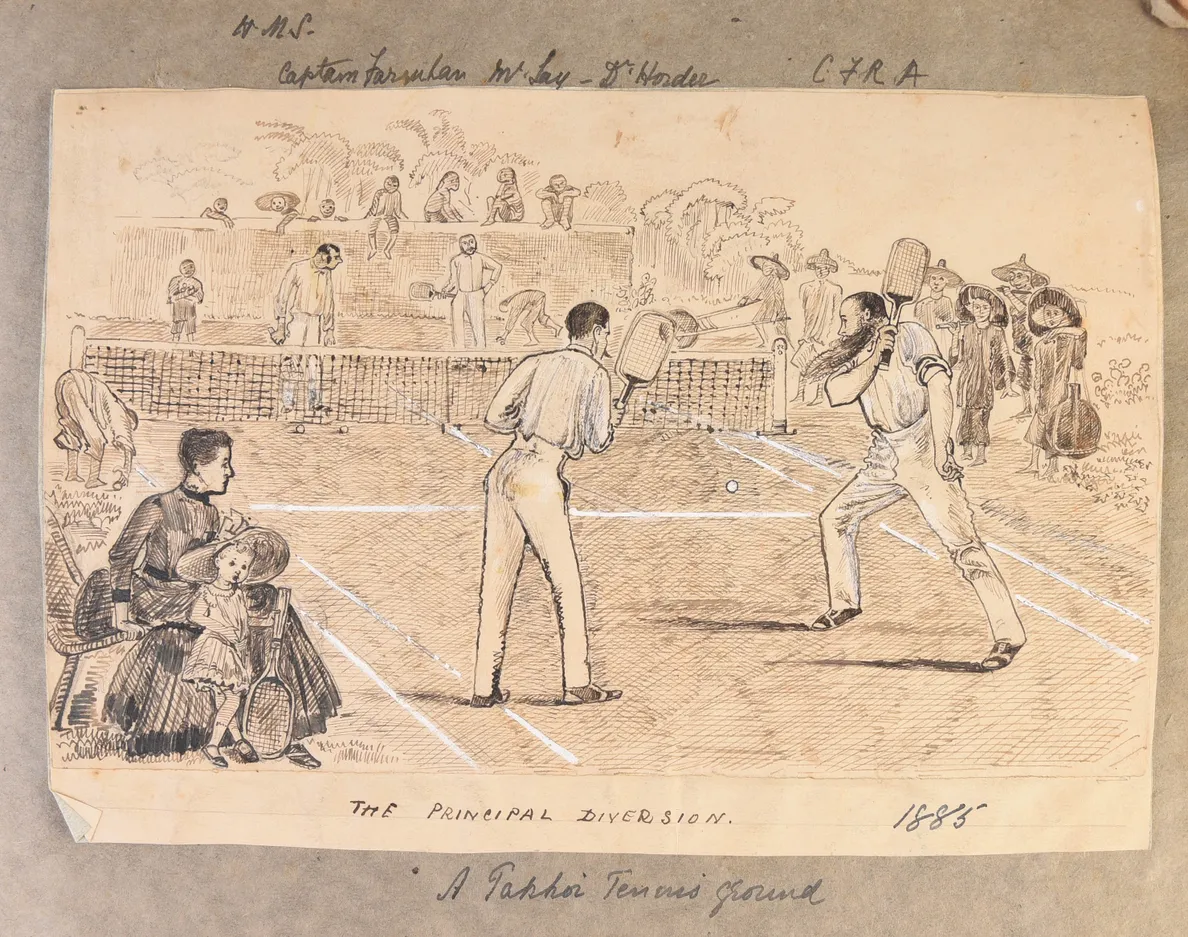 H.M.S.
Captain Farquhar Mr Lay - Dr Horder C F R A
THE PRINCIPAL DIVERSION.
1885
A Pakhoi Tennis ground